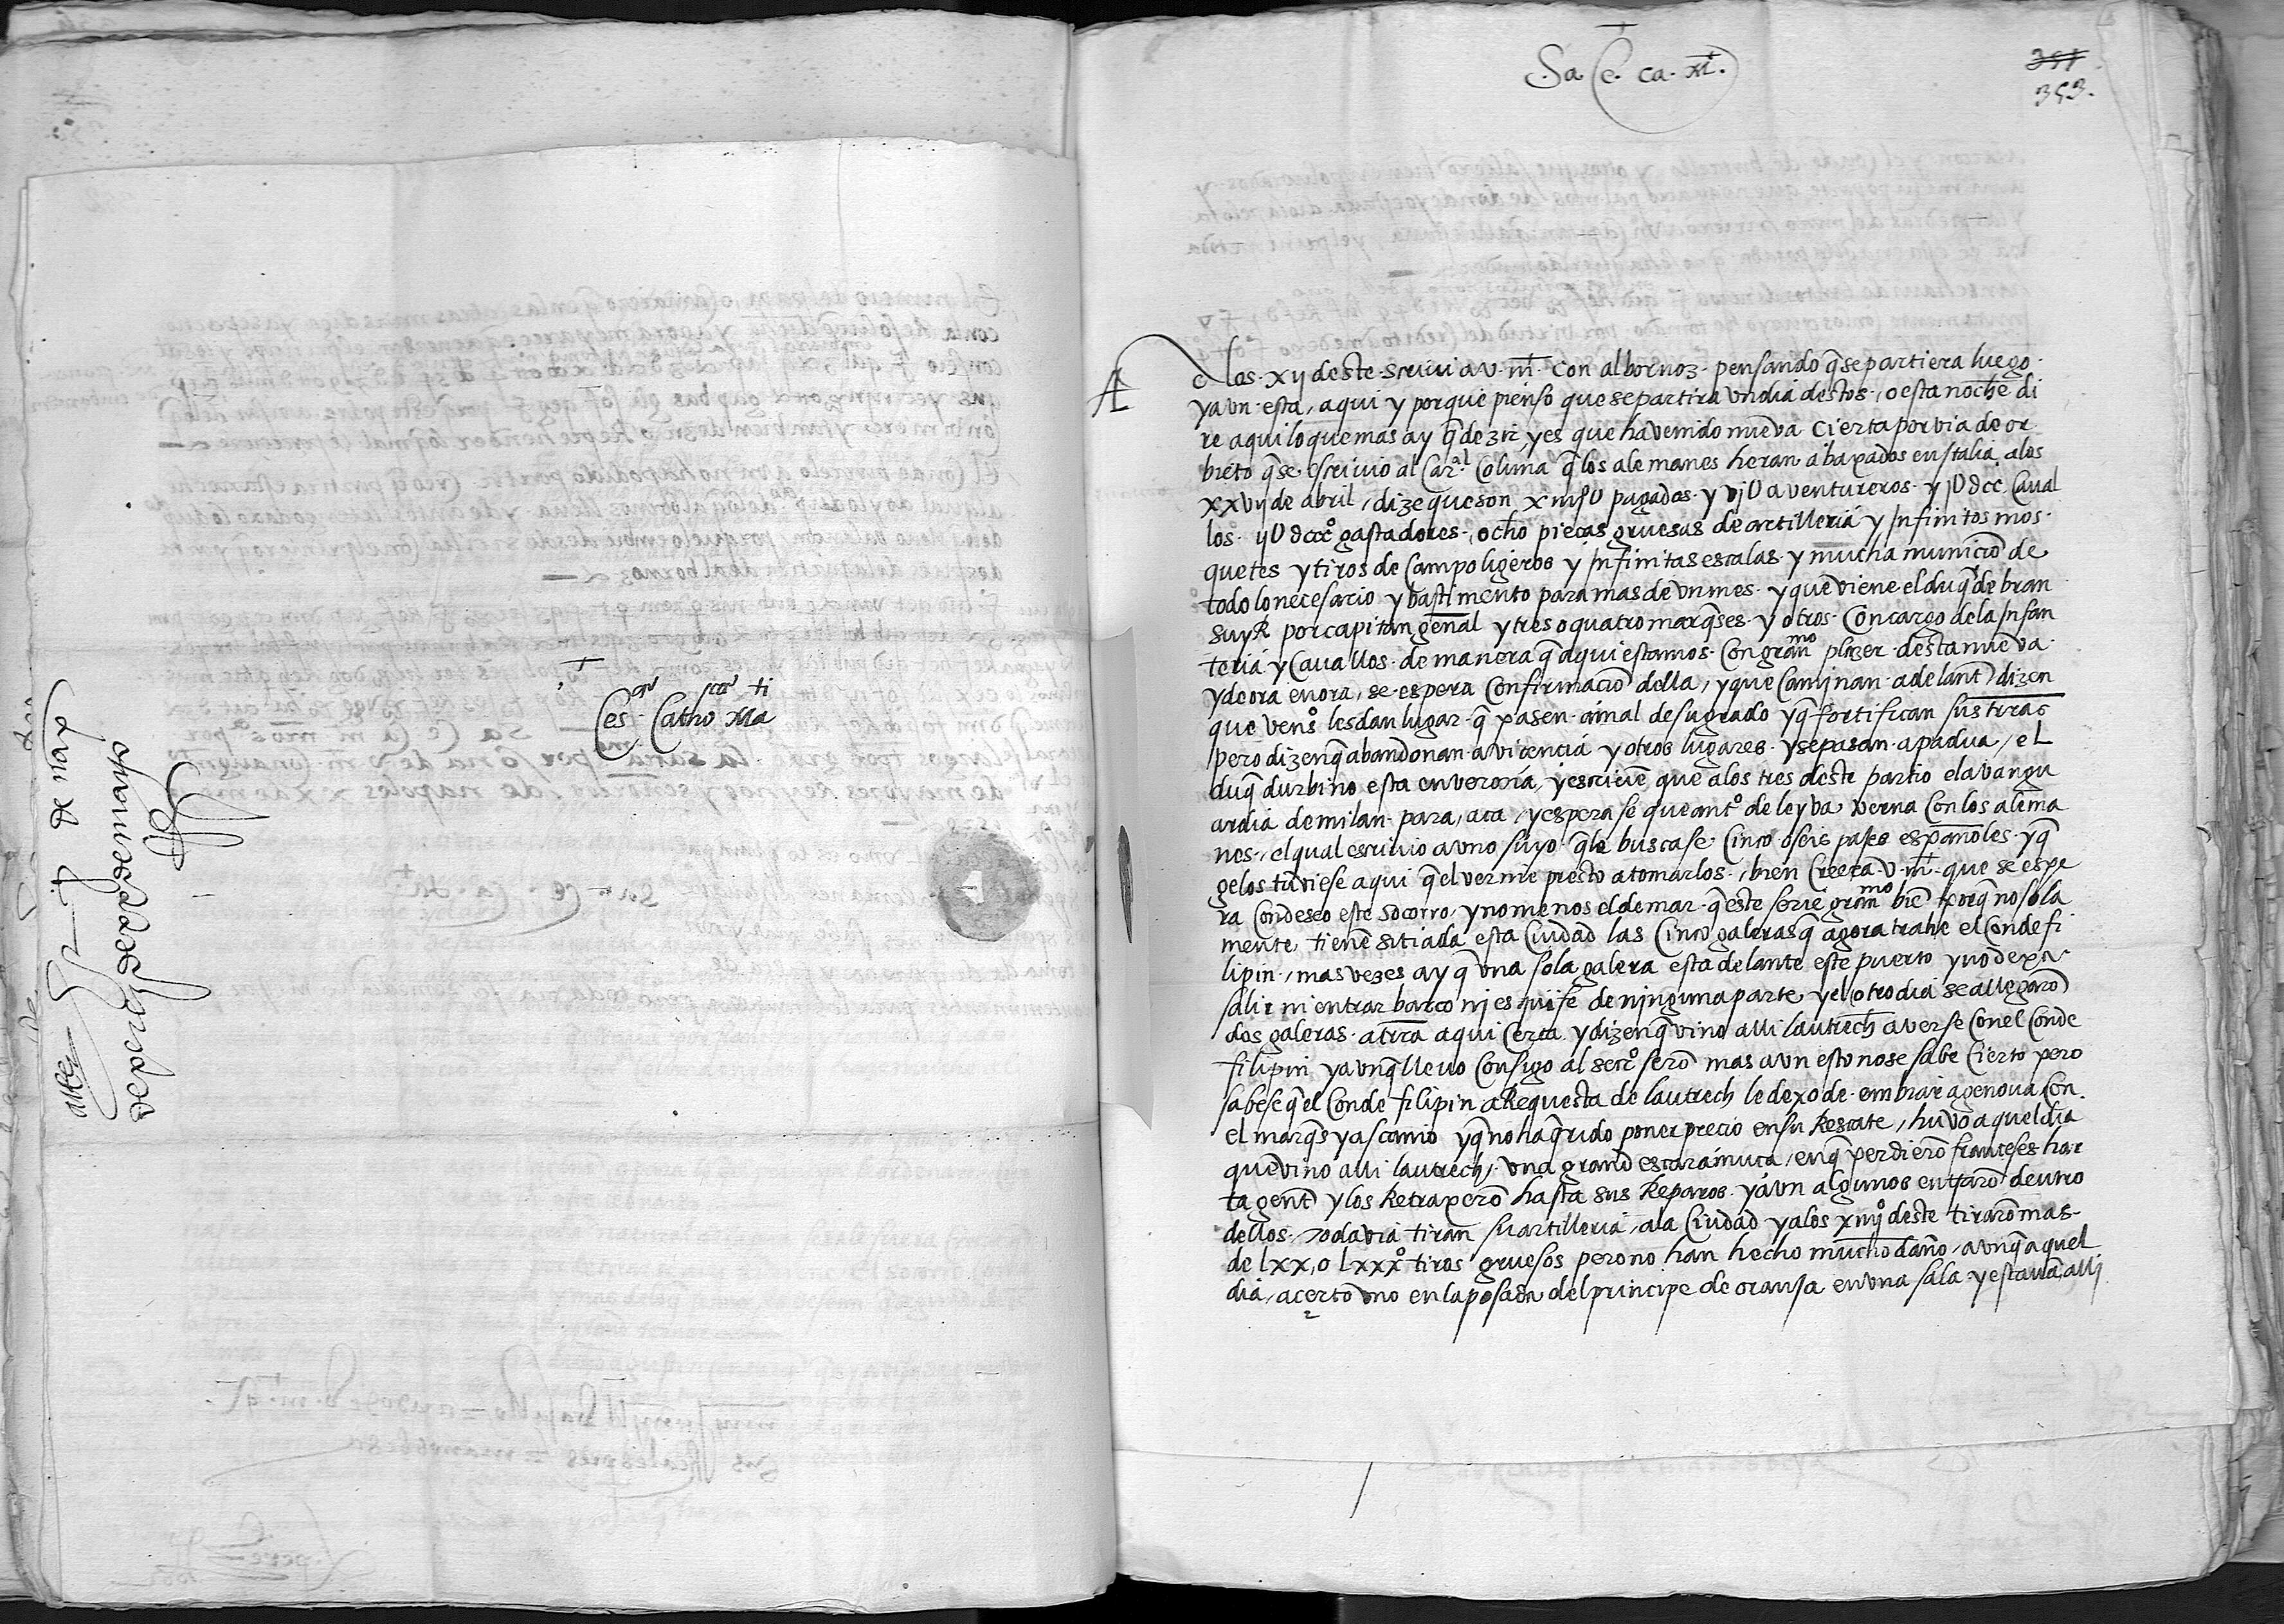 Ces. Catho. Ma ti
alte
de nap
de perez de xx de mayo
Sa. Ce. ca. mt.
351
353.
A los xij deste screui a v. mt. con albornoz. pensando q̃ se partiera luego.
y avn esta, aqui y porque pienso que se partira vn dia destos, o esta noche di
re aqui lo que mas ay q̃ dezir, yes que ha venido nueva cierta por via de or
bieto q̃ se escriuio al Car.al Coluna q̃ los alemanes heran abaxados en ytalia alos
xxvij de abril, dize que son pagados. y vjU aventureros. y jU dcc. Caual
los. ijU dccc.o gastadores., ocho pieças gruesas de artilleria y Infinitos mos.
quetes y tiros de Campo ligeros y Infinitas escalas. y mucha municiō de
todo lo necesario y bastimento para mas de vn mes. y que viene el duq̃ de bran
suyk por capitan gen̄al y tres o quatro marq̃ses. y otros. Con cargo de la Infan
teria y Cauallos. de manera q̃ aqui estamos. Con gran.mo plazer desta nueva
y de ora en ora, se espera Confirmaciō della, y que Caminan adelante dizen
que venos. les dan lugar. q̃ pasen. a mal de su grado y q̃ fortifican sus tr̄ras
pero dizen q̃ abandonan a vicencia y otros lugares. y se pasan a padua, el
duq̃ durbino esta en verona, y escrivē que alos tres deste partio el avangu
ardia de milan para, aca, y espera se que anto de leyba verna Con los alema
nes., el qual escriuio a vno suyo q̃ le buscase. Cinco o seis pajes españoles. y q̃
ge los tuviese aqui q̃ el vernie presto a tomarlos., bien Creera v. mt. que se espe
ra Con deseo este socorro, y no menos el de mar. q̃ este serie gran.mo biē porq̃ no sola
mente, tienē sitiada esta Ciudad las Cinco galeras q̃ agora trahe el Conde fi
lipin., mas vezes ay q̃ vna sola galera esta delante este puerto y no dexa
salir ni entrar barco nj esquife de njnguna parte y el otro dia se allegarō
dos galeras. a tr̄ra aqui Cerca y dizen q̃ vino alli lautrech a verse Con el Conde
filipin y avnq̃ lleuo Consigo al secr.o serō mas avn esto no se sabe cierto pero
sabese q̃ el Conde filipin a Requesta de lautrech le dexo de. embiar a genova Con.
el marq̃s y ascanio y q̃ no ha q̃rido poner precio en su Rescate, huvo aquel dia
que vino alli lautrech, vna grand escaramuça, en q̃ perdierō franceses. har
ta gente y los Retraxerō hasta sus Reparos. y avn algunos entrarō dentro
dellos. todavia tiran su artilleria, ala Ciudad y alos xiiijo deste tirarō mas.
de lxx, o lxxxo tiros gruesos pero no han hecho mucho daño, avnq̃ aquel
dia, acerto vno en la posada del principe de oransa en vna sala y estauā, allj